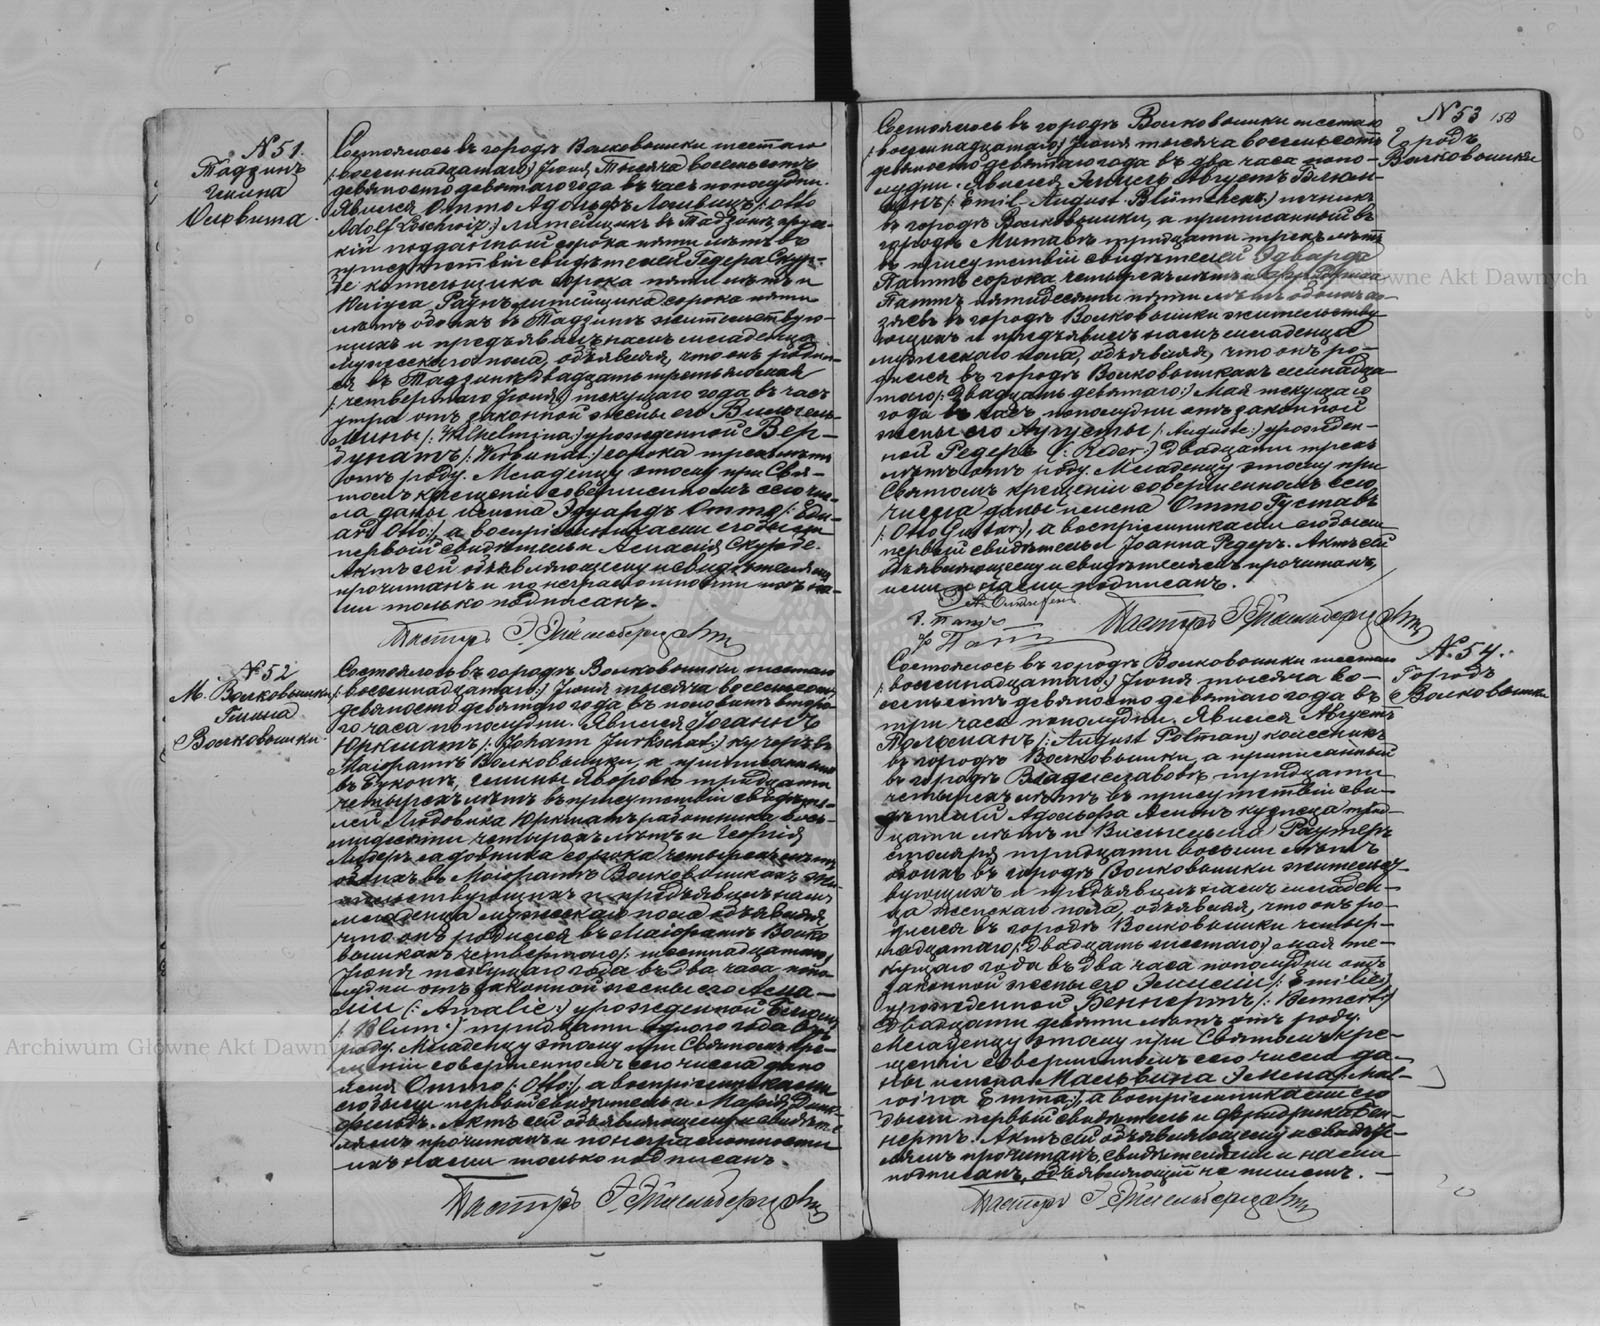 N 51.
Тадзинъ
гмина
Состоялось въ городѣ Волковышки шестаго
/:восемнадцатаго:/ Іюня, Тысяча восемьсотъ
девяносто девятаго года въ часъ пополудни.
Явился Отто Адольфъ /: Otto
Adolf :/ литейщикъ въ
подданный сорока пяти лѣтъ въ
присутствіи свидѣтелей
сорока пяти лѣтъ и
литейщика сорока пяти
лѣтъ обоихъ въ жительствую-
щихъ и предъявилъ намъ младенца
мужескаго пола, объявляя, что онъ родил-
ся въ двадцать третьяго мая
/:четвертаго Іюня:/ текущаго года въ часъ
утра отъ законной жены его Вильгель-
мины /: Wilhelmina :/ урожденной Вер-
дунатъ /: Werdunat :/ сорока трехъ лѣтъ
отъ роду. Младенцу этому при Свя-
томъ крещеніи совершенномъ сего чи-
сла даны имена Эдуардъ Отто /: Edu-
ard Otto :/, а воспріемниками его были
первый свидѣтель и Амалія Скуроде.
Актъ сей объявляющему и свидѣтелямъ
прочитанъ и по неграмотности ихъ на-
ми только подписанъ.
Пасторъ
№ 52
М. Волковышки
Гмина
Волковышки.
Состоялось въ городѣ Волковышки шестаго
/:восемнадцатаго:/ Іюня тысяча восемьсотъ
девяносто девятаго года въ половинѣ второ-
го часа пополудни. Явился Іоганнъ
Юркшатъ /: Johann Jurkschat :/ кучеръ въ
Маіоратѣ Волковышки, а приписанный
гмины Яворовъ тридцати
четырехъ лѣтъ въ присутствіи свидѣте-
лей Людовика Юркшатъ работника вось-
мидесяти четырехъ лѣтъ и Георгія
садовника сорока четырехъ лѣтъ
обоихъ въ Маіоратѣ Волковышкахъ жи-
тельствующихъ и предъявилъ намъ
младенца мужескаго пола объявляя
что онъ родился въ Маіоратѣ Волко-
вышкахъ четвертаго /: шестнадцатаго:/
Іюня текущаго года въ два часа попо-
лудни отъ законной жены его Ама-
ліи /: Amalie :/ урожденной Блюмъ
/: Blum :/ тридцати одного года отъ
роду. Младенцу этому при Святомъ кре-
щеніи совершенномъ сего числа дано
имя Отто /: Otto :/, а воспріемниками
его были первый свидѣтель и Марія
Актъ сей объявляющему и свидѣте-
лямъ прочитанъ и по неграмотности
ихъ нами только подписанъ.
Пасторъ
N 53
Городъ
Волковышки
Состоялось въ городѣ Волковышки шестаго
/:восемнадцатаго:/ Іюня тысяча восемьсотъ
девяносто девятаго года въ два часа попо-
лудни. Явился Эмиль Августъ Блюм-
/: Emil August Blümchen :/ печникъ
въ городѣ Волковышки, а приписанный въ
городѣ Митавѣ тридцати трехъ лѣтъ
въ присутствіи свидѣтелей Эдварда
Паттъ сорока четырехъ лѣтъ и
Паттъ пятидесяти пяти лѣтъ обоихъ хо-
зяевъ въ городѣ Волковышки жительству-
ющихъ и предъявилъ намъ младенца
мужескаго пола, объявляя, что онъ ро-
дился въ городѣ Волковышкахъ семнадца-
таго /: двадцать девятаго:/ Мая текущаго
года въ часъ пополудни отъ законной
жены его Аугусты /: Auguste :/ урожден-
ной Редеръ /: Reder :/ двадцати трехъ
лѣтъ отъ роду. Младенцу этому при
Святомъ крещеніи совершенномъ сего
числа даны имена Отто Густавъ
/: Otto Gustav :/, а воспріемниками его были
первый свидѣтель и Іоанна Редеръ. Актъ сей
объявляющему и свидѣтелямъ прочитанъ,
ими и нами подписанъ.
Пасторъ
N. 54.
Городъ
Волковышки
Состоялось въ городѣ Волковышки шестаго
/:восемнадцатаго:/ Іюня тысяча во-
семьсотъ девяносто девятаго года въ
три часа пополудни. Явился Августъ
Польманъ /: August Polman :/ колесникъ
въ городѣ Волковышки, а приписанный
въ городѣ Владиславовъ тридцати
четырехъ лѣтъ въ присутствіи сви-
дѣтелей Адольфа кузнеца трид-
цати лѣтъ и Вильгельма Раутеръ
столяра тридцати восьми лѣтъ
обоихъ въ городѣ Волковышки жительст-
вующихъ и предъявилъ намъ младен-
ца женскаго пола, объявляя, что онъ ро-
дился въ городѣ Волковышки четыр-
надцатаго /: двадцать шестаго:/ мая те-
кущаго года въ два часа пополудни отъ
законной жены его Эмиліи /: Emilie :/
урожденной Беннертъ /: Bennert :/
двадцати девяти лѣтъ отъ роду.
Младенцу этому при Святомъ кре-
щеніи совершенномъ сего числа да-
ны имена Мальвина Эмма /: Mal-
wina Emma :/, а воспріемниками его
были первый свидѣтель и Фридрика Бен-
нертъ. Актъ сей объявляющему и свидѣте-
лямъ прочитанъ, свидѣтелями и нами
подписанъ, объявляющій не пишетъ. —
Пасторъ
Archiwum Główne Akt Dawnych
Archiwum Główne Akt Dawnych